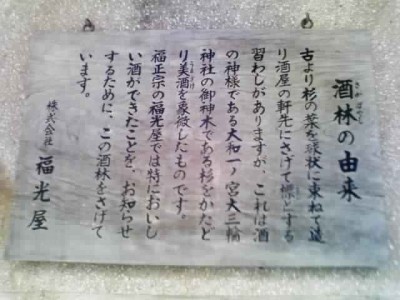 酒林の由来
古より杉の葉を球状に束ねて造
り酒屋の軒先にさげて標とする
習わしがありますが、これは酒
の神様である大和一ノ宮大三輪
神社の御神木である杉をかたど
り美酒を象徴したものです。
福正宗の福光屋では特においし
い酒ができたことを、お知らせ
するために、この酒林をさげて
います。
株式会社 福光屋